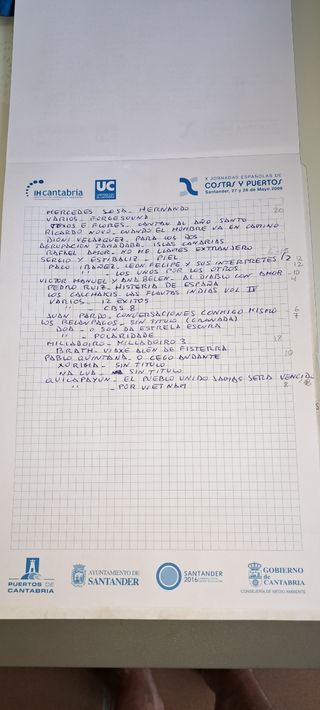 IHcantabria
UC
X JORNADAS ESPAÑOLAS DE
COSTAS Y PUERTOS
Santander, 27 y 28 de Mayo 2009
MERCEDES SOSA - HERNANDO 20
VARIOS - FORGESOUND
JEXUS E FLORES - CANTAN AL AÑO SANTO
RICARDO NOVO, CUANDO EL HOMBRE VA EN CAMINO
DIONI VELAZQUEZ, PARA LOS DOS
AGRUPACION TANADARA, ISLAS CANARIAS
RAFAEL AMOR - NO ME LLAMES EXTRANJERO
SERGIO Y ESTIBALIZ - PIEL
PACO IBAÑEZ, LEON FELIPE Y SUS INTERPRETES 12
" - LOS UNOS POR LOS OTROS 12
VICTOR MANUEL Y ANA BELEN - AL DIABLO CON AMOR - 10
PEDRO RUIZ - HISTERIA DE ESPAÑA
LOS CALCHAKIS. LAS FLAUTAS INDIAS VOL IV
VARIOS - 12 EXITOS
" - CBS 8
JUAN PARDO - CONVERSACIONES CONMIGO MISMO 6
LOS RELAMPAGOS - SIN TITULO (GRANADA) 7
DOA - O SON DA ESTRELA ESCURA
" - POLARIDADE
MILLADOIRO - MILLADOIRO 3 18
BRATH - VIAXE ALEN DE FISTERRA
PABLO QUINTANA - O CEGO ANDANTE 10
XORIMA - SIN TITULO
NA LUA - SIN TITULO
QUILAPAYUN - EL PUEBLO UNIDO JAMAS SERA VENCID
" - POR VIETNAM 8
PUERTOS DE
CANTABRIA
AYUNTAMIENTO DE
SANTANDER
SANTANDER
2016
GOBIERNO
de
CANTABRIA
CONSEJERÍA DE MEDIO AMBIENTE